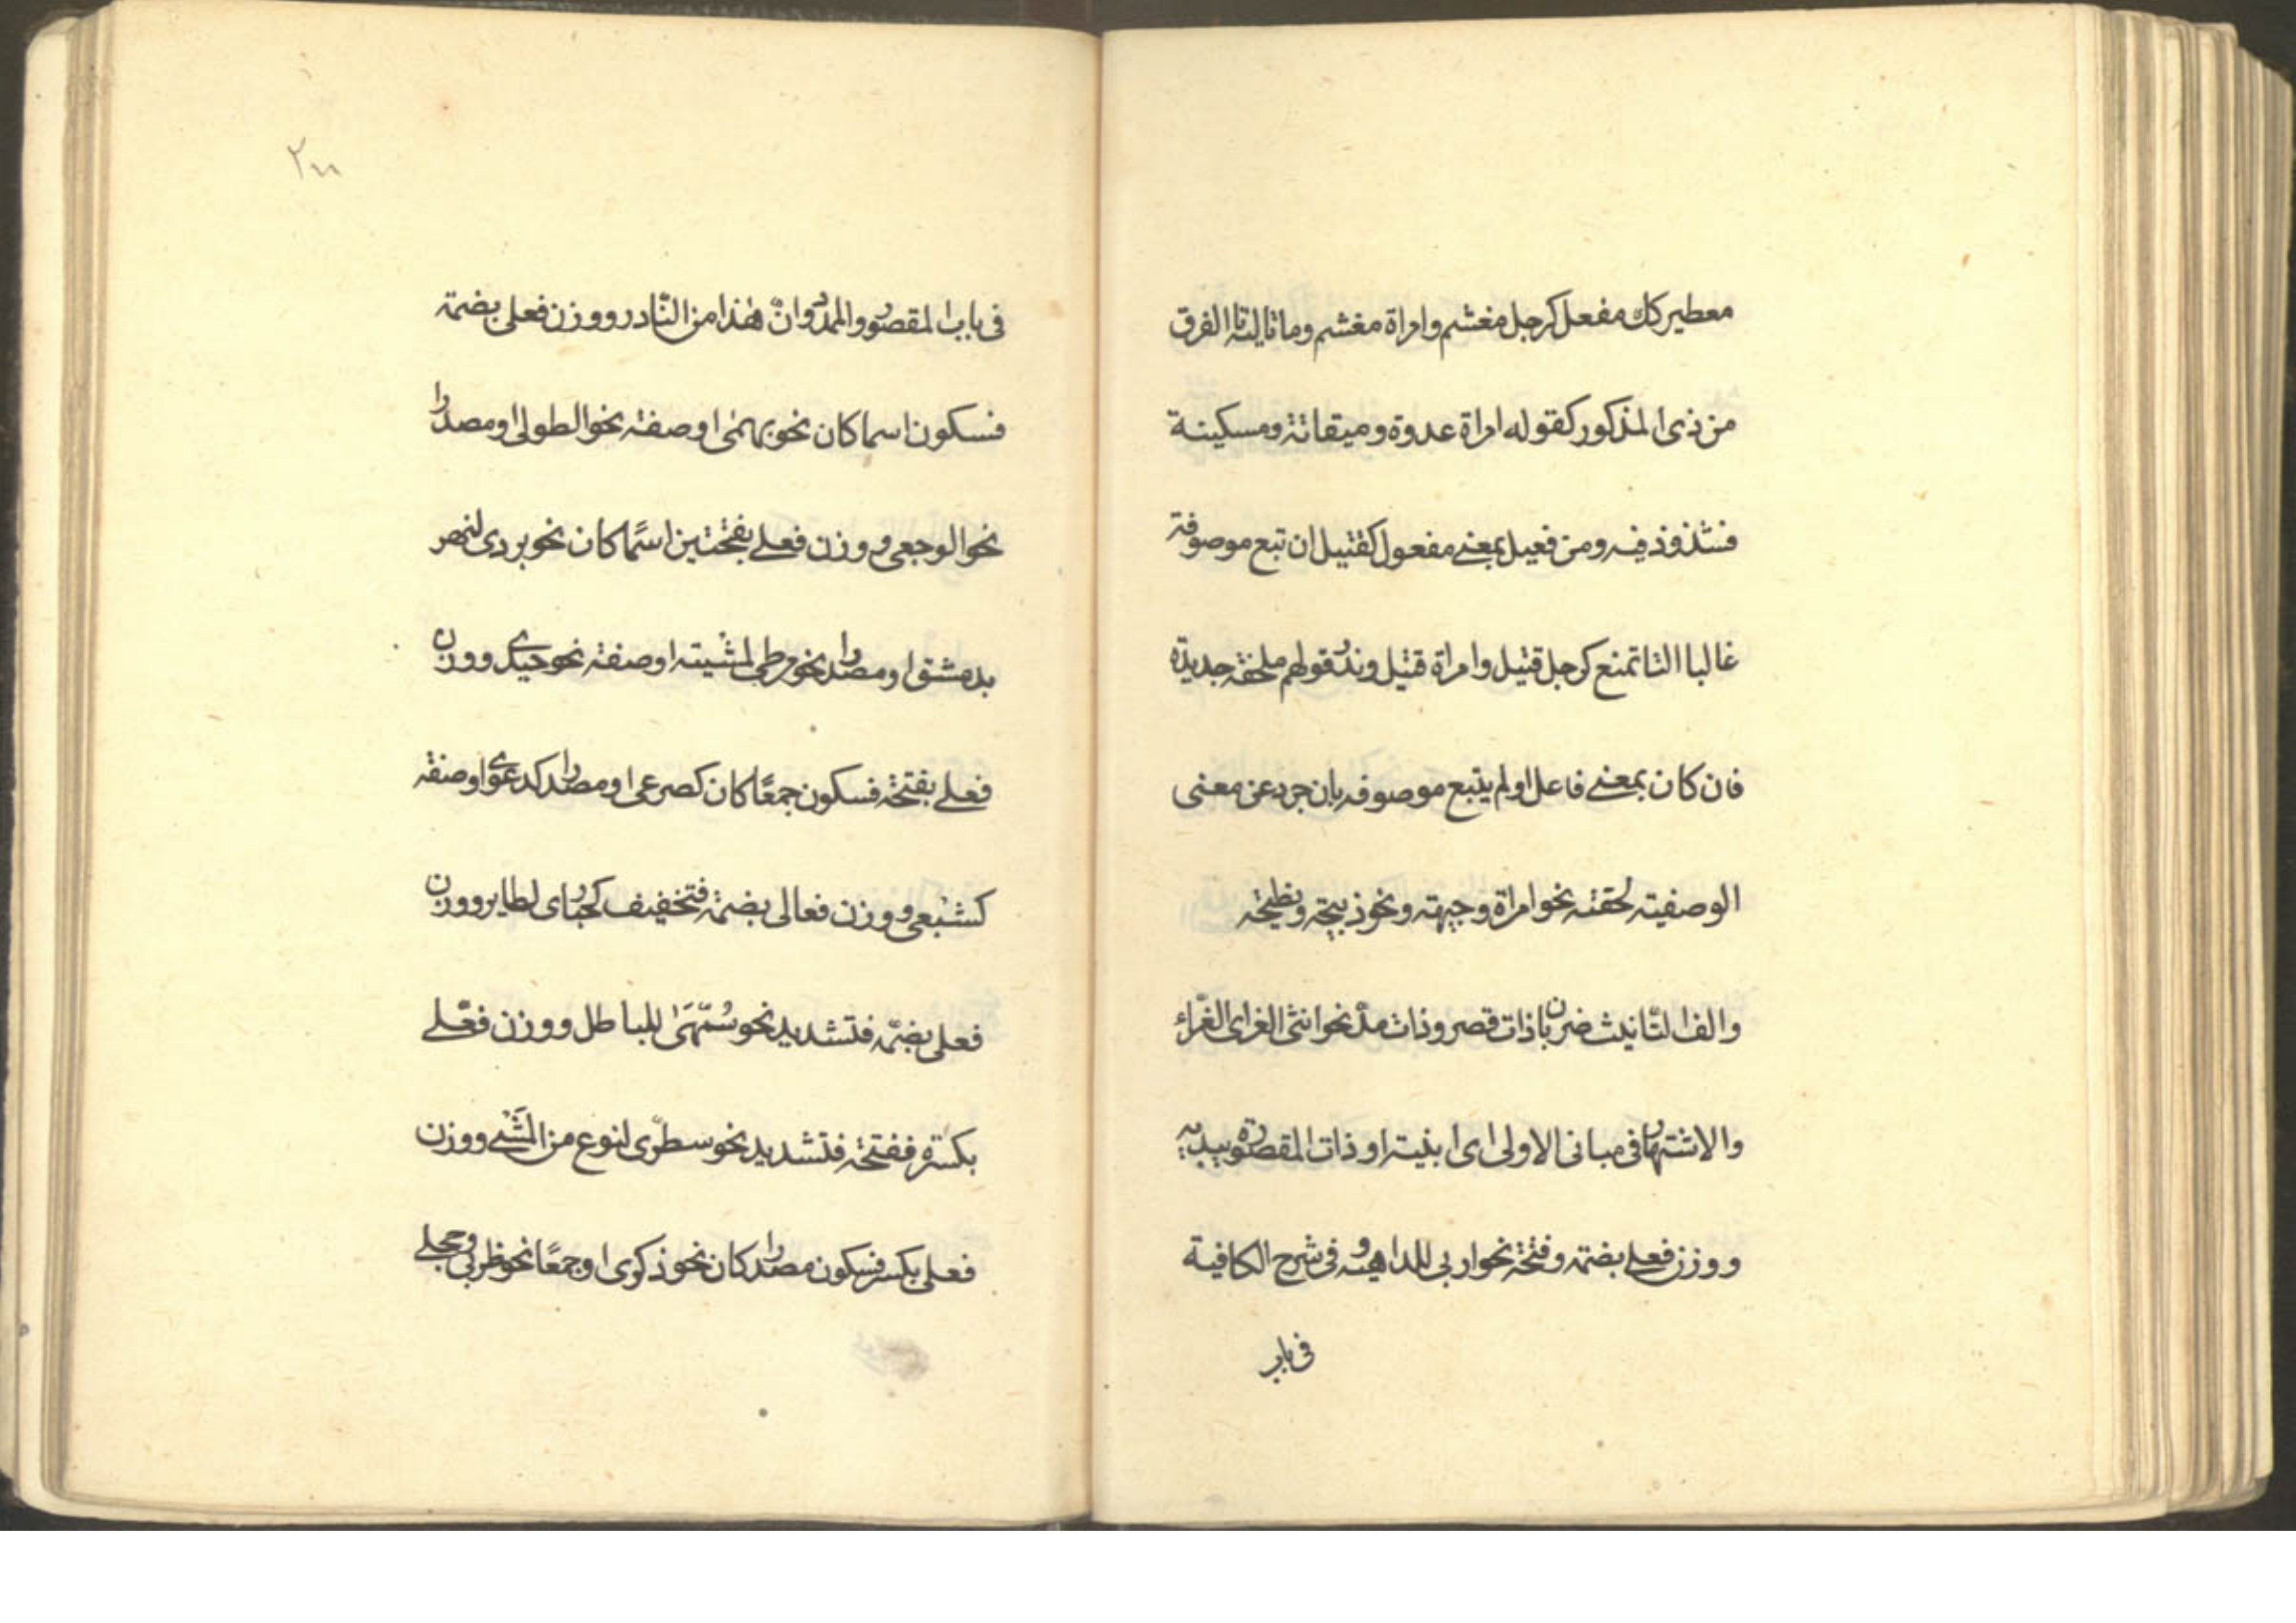 معطير كك مفعل كرجل مغشم وامراة مغشم وما تاليه تا الفرق
من ذى المذكور كقوله امراة عدوة وميقانة ومسكينة
فشذوذ فيه ومن فعيل بمعنے مفعول كقتيل ان تبع موصوفة
غالبا التا تمنع كرجل قتيل وامراة قتيل وندر قولهم ملحفة جديدة
فان كان بمعنے فاعل او لم يتبع موصوفه بان جرد عن معنى
الوصفية لحقته نحو امراة وجيهة ونحو ذبيحة ونطيحة
والف التّانيث ضربان ذات قصر وذات مدّ نحو انثى الغراى الغرّاء
والاشتهار فى مبانى الاولى اى ابنية او ذات المقصورة يبديه
ووزن فعلے بضمة وفتحة نحو اربى للداهية و فى شرح الكافية
فى باب
٢٠٠
فى باب المقصور والممدود انّ هٰذا من النّادر ووزن فعلى بضمة
فسكون اسما كان نحو بهمٰى او صفة نحو الطولى او مصدرا
نحو الوجعى ووزن فعلے بفتحتين اسمًا كان نحو بردى لنهر
بدمشق او مصدرا نحو مرطى لمشية او صفة نحو حيدى ووزن
فعلے بفتحة فسكون جمعًا كان كصرعى او مصدرا كدعوى او صفة
كشبعى ووزن فعالى بضمة فتخفيف كحبارى لطاير ووزن
فعلى بضمّة فتشديد نحو سُمّهَىٰ للباطل ووزن فعّلے
بكسرة ففتحة فتشديد نحو سطرّى لنوع من المَشْے ووزن
فعلى بكسر فسكون مصدرا كان نحو ذكرى او جمعًا نحو ظربى وحجلے